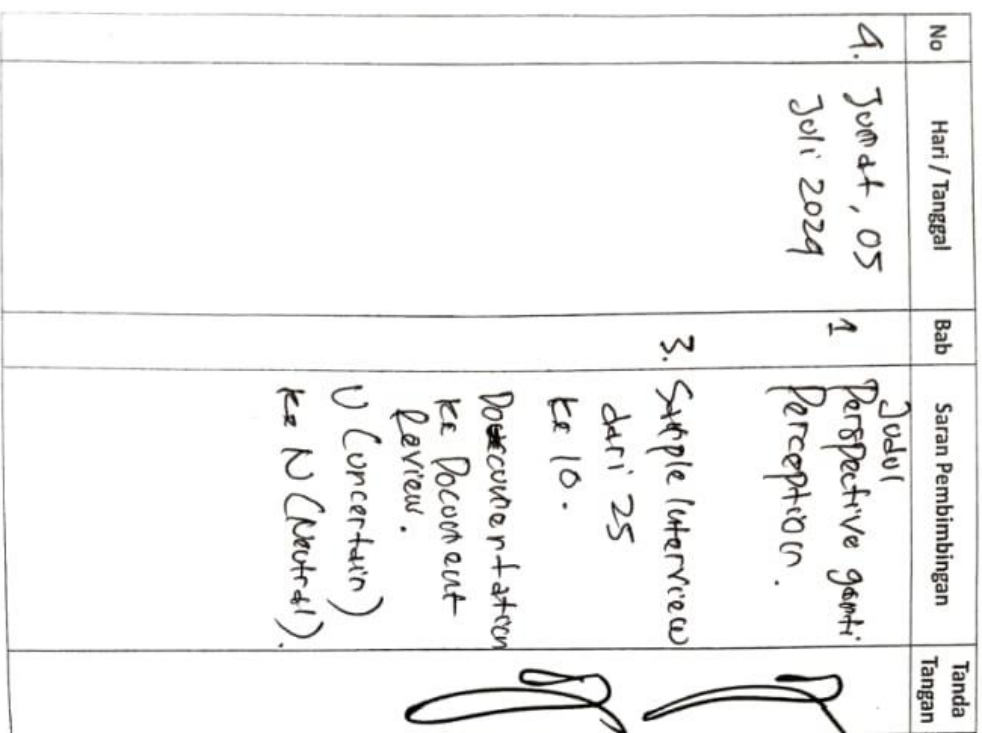 No
Hari / Tanggal
Bab
Saran Pembimbingan
Tanda
Tangan
4.
Jumat, 05
Juli 2024
1
Judul
Perspective ganti
Perception.
3.
Sample Interview
dari 25
ke 10.
Documentation
ke Document
Review.
U (Uncertain)
ke N (Neutral).